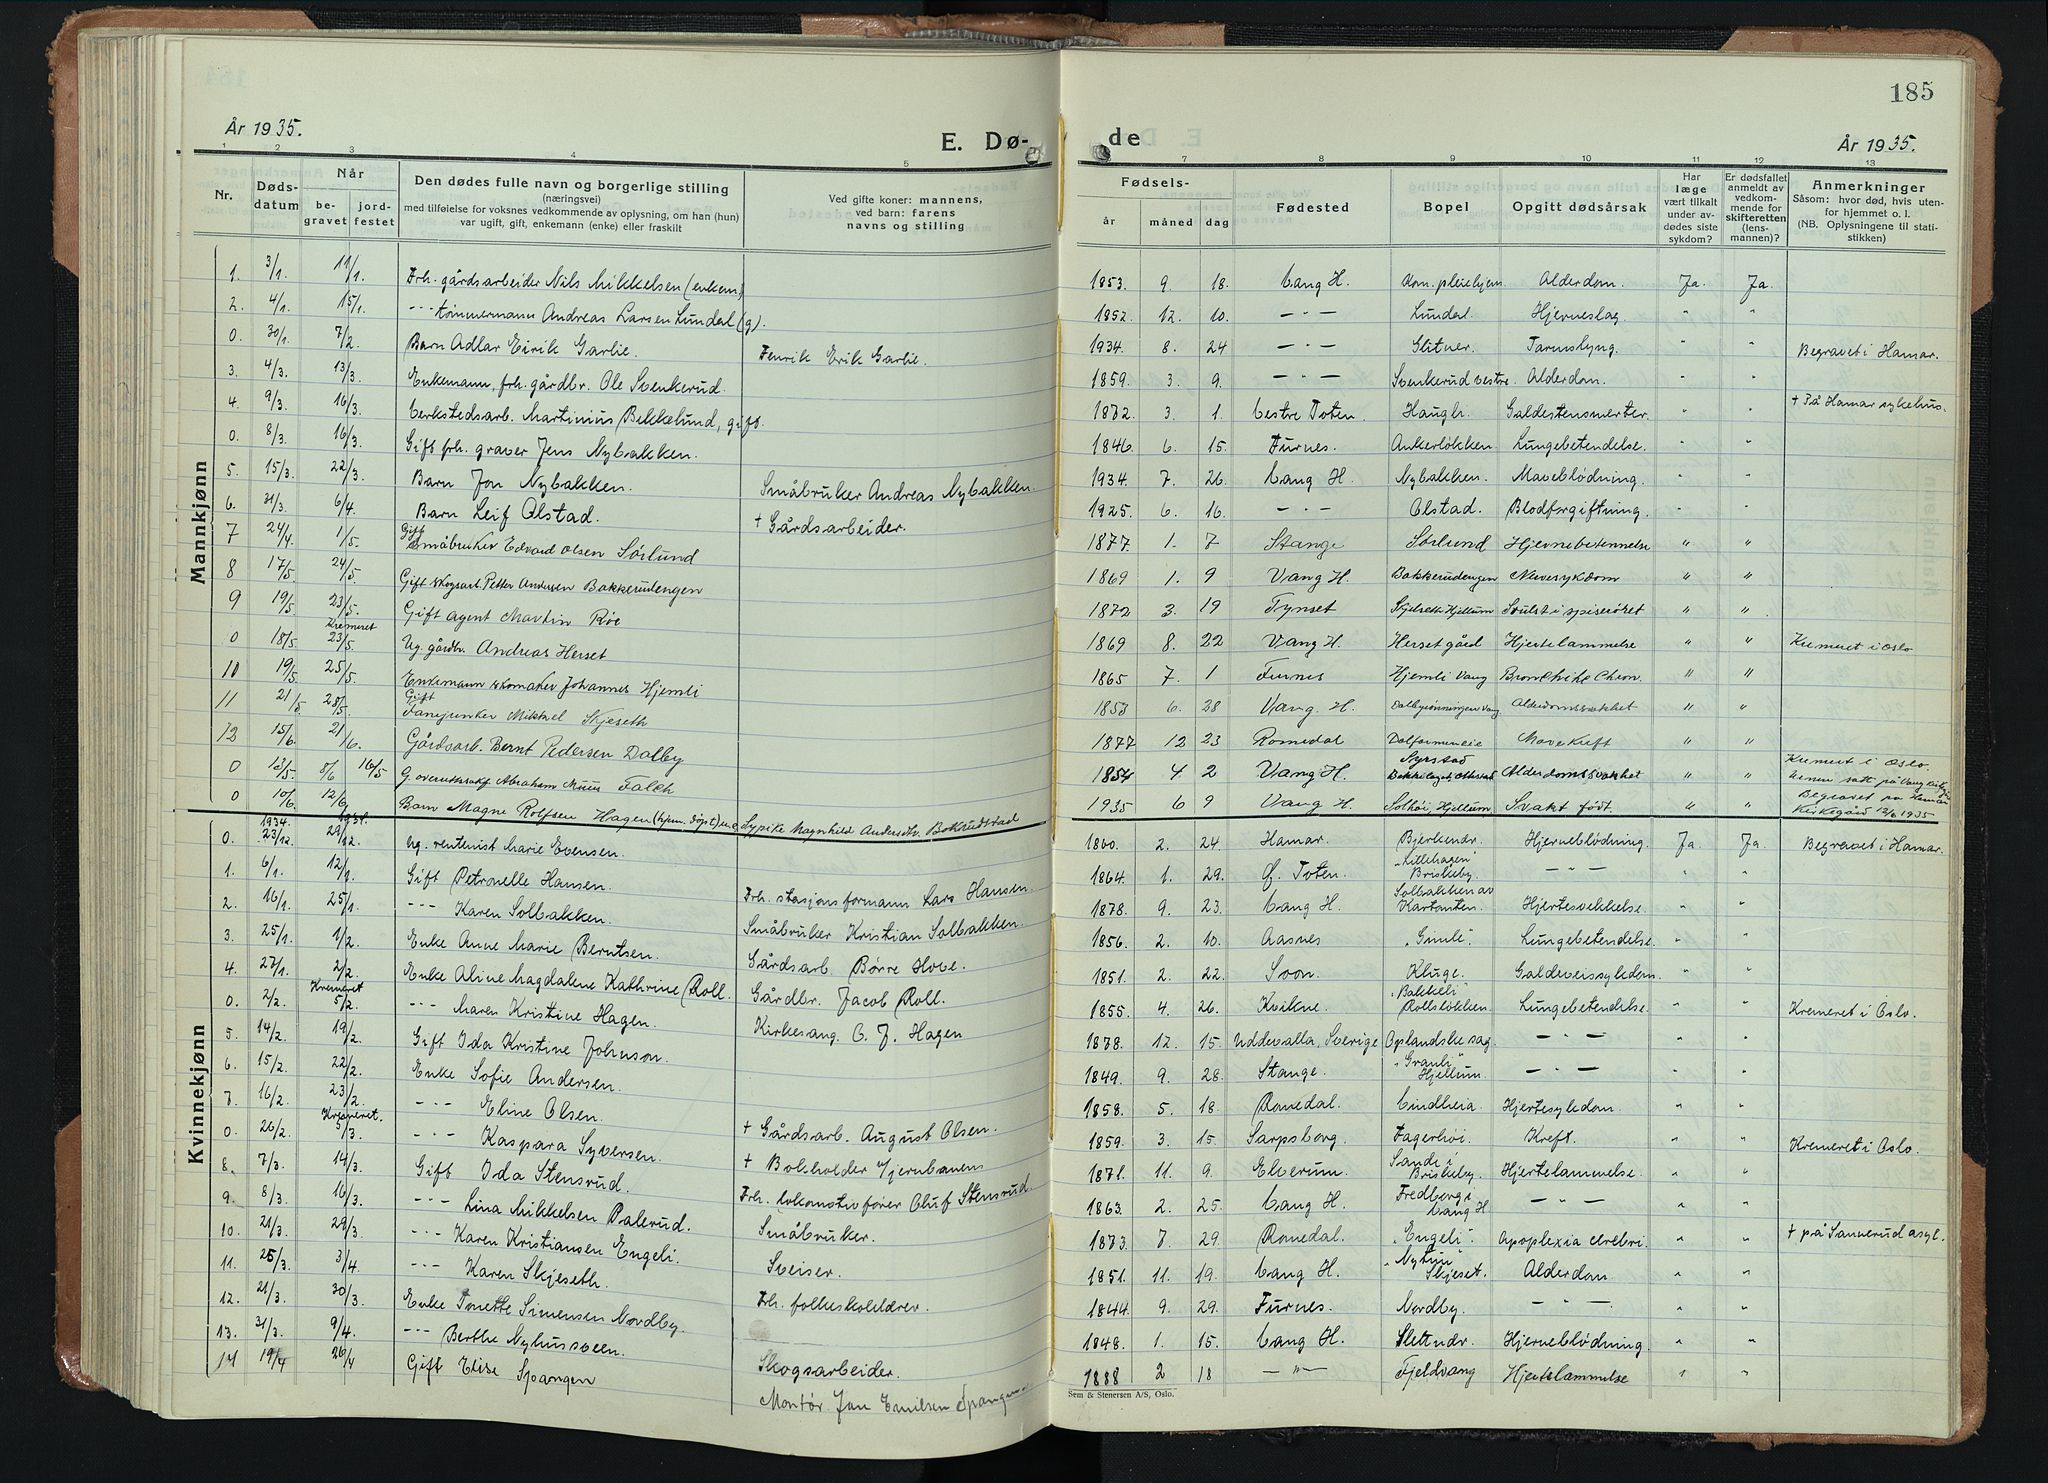 185
År 1935.
E. Dø-
de
År 1935.
1 2 3 4 5
7 8 9 10 11 12 13
Nr.
Døds-
datum
Når
be-
gravet
jord-
festet
Den dødes fulle navn og borgerlige stilling
(næringsvei)
med tilføielse for voksnes vedkommende av oplysning, om han (hun)
var ugift, gift, enkemann (enke) eller fraskilt
Ved gifte koner: mannens,
ved barn: farens
navns og stilling
Fødsels-
år
måned
dag
Fødested
Bopel
Opgitt dødsårsak
Har
læge
vært tilkalt
under av-
dødes siste
sykdom?
Er dødsfallet
anmeldt av
vedkom-
mende for
skifteretten
(lens-
mannen)?
Anmerkninger
Såsom: hvor død, hvis uten-
for hjemmet o. l.
(NB. Oplysningene til stati-
stikken)
Mannkjønn
1. 3/1. 11/1. Frh. gårdsarbeider Nils Mikkelsen (enkem) 1853. 9. 18. Vang H. Kom. pleiehjem Alderdom. Ja. Ja.
2. 4/1. 15/1. -"- tømmermann Andreas Larsen Lundal (g). 1852. 12. 10. -"- Lundal. Hjerneslag. " "
0. 30/1. 7/2. Barn Adlar Eirik Garlie. Henrik Erik Garlie. 1934. 8. 24 -"- Slitner. Tarmslyng. " " Begravet i Hamar.
3. 4/3. 13/3. Enkemann, frh. gårdbr. Ole Svenkerud. 1859. 3. 9. -"- Svenkerud vestre. Alderdom. " "
4. 9/3. 16/3. Verkstedsarb. Martinius Bekkelund, gift. 1872. 3. 1. Vestre Toten. Haugli. Galdestensmerter. " " + På Hamar sykehus.
0. 8/3. 16/3. Gift frh. graver Jens Nybakken. 1846. 6. 15. Furnes. Ankerløkken Lungebetendelse. " "
5. 15/3. 22/3. Barn Jon Nybakken. Småbruker Andreas Nybakken. 1934. 7. 26. Vang H. Nybakken. Maveblødning. " "
6. 31/3. 6/4. Barn Leif Olstad. + Gårdsarbeider. 1925. 6. 16. -"- Olstad. Blodforgiftning. " "
7 24/4. 1/5. Gift Småbruker Edvard Olsen Sørlund 1877. 1. 7 Stange Sørlund Hjernebetennelse " "
8 17/5 24/5. Gift skogsarb. Petter Andersen Bakkerudengen 1869 1. 9 Vang H. Bakkerudengen Nervesykdom " "
9 19/5 23/5. Gift agent Martin Røe 1872 3. 19 Tynset Skjelseth Hjellum Svulst i spiserøret " "
0 18/5. Kremeret 23/5. Ug. gårdbr. Andreas Herset 1869 8. 22 Vang H. Herset gård Hjertelammelse " " Kremeret i Oslo
10 19/5. 25/5. Enkemann skomaker Johannes Hjemli 1865 7. 1 Furnes Hjemli Vang Bronchite Chron. " "
11 21/5 28/5. Gift Fanejunker Mikkael Skjeseth 1853 6. 28 Vang. H. Alderdomssvakhet " "
12 15/6. 21/6. Gårdsarb. Bernt Pedersen Dalby 1877 12 23 Romedal Mavekreft " "
0 13/5 8/6 16/5 Abraham Muus Falch 1854 4. 2 Vang H. Alderdomssvakhet " " Kremert i Oslo.
0 10/6. 12/6 Barn Magne Rolfsen Hagen (hjem. døpt) Sypike Magnhild Andersdtr. Bakrudstad 1935 6 9 Vang H. Solhøi, Hjellum. Svakt født. " " Begravet på Hamar Kirkegård 12/6 1935
Kvinnekjønn
0. 1934. 23/12. 1934. 29/12. Ug. rentenist Marie Evensen. 1860. 2. 24. Hamar. Bjerkendr. Hjerneblødning. Ja. Ja. Begravet i Hamar.
1. 6/1. 12/1. Gift Petronelle Hansen. Frh. stasjonsformann Lars Hansen. 1864. 1. 29. Ø. Toten. "Lillehagen" Briskeby. -"- " "
2. 16/1. 25/1. -"- Karen Solbakken. Småbruker Kristian Solbakken. 1878. 9. 23. Vang H. Solbakken av Kartanten. Hjertesvekkelse. " "
3. 25/1. 1/2. Enke Anne Marie Berntsen. Gårdsarb. Børre Hove. 1856. 2. 10. Aasnes "Gimle". Lungebetendelse. " "
4. 27/1. 2/2. Enke Aline Magdalene Kathrine Roll. Gårdbr. Jacob Roll. 1851. 2. 22. Soon. Kluge. Galdeveissykdom. " "
0. 2/2. Kremeret 5/2. -"- Maren Kristine Hagen. Kirkesang. O. J. Hagen 1855. 4. 26. Kvikne. "Bakkeli" Rollsløkken. Lungebetendelse. " " Kremeret i Oslo.
5. 14/2. 19/2. Gift Ida Kristine Johnson. 1878. 12. 15. Uddevalla, Sverige Oplandske sag. -"- " "
6. 15/2. 22/2. Enke Sofie Andersen. 1849. 9. 28. Stange. "Granli" Hjellum. -"- " "
7. 16/2. 23/2. -"- Eline Olsen. + Gårdsarb. August Olsen. 1858. 5. 18. Romedal. Lindheia. Hjertesykdom. " "
0. 26/2. Kremeret. 5/3. -"- Kaspara Syversen. + Bokholder Hjernbanens 1859. 3. 15. Sarpsborg. Fagerhøi. Kreft. " " Kremeret i Oslo.
8. 7/3. 14/3. Gift Ida Stensrud. Frh. lokomotivfører Oluf Stensrud. 1871. 11. 9. Elverum. Sande i Briskeby. Hjertelammelse. " "
9. 8/3. 16/3. -"- Lina Mikkelsen Palerud. Småbruker. 1863. 2. 25. Vang H. Fredberg i Vang H. -"- " "
10. 21/3. 29/3. -"- Karen Kristiansen Engeli. Sveiser. 1873. 7. 29. Romedal. "Engeli". Apoplexia cerebri. " " + på Sanerud asyl.
11. 25/3. 3/4. -"- Karen Skjeseth. Frh. folkeskolelærer. 1851. 11. 19. Vang H. "Nytun" Skjeset. Alderdom. " "
12. 21/3. 30/3. Enke Tonette Simensen Nordby. 1844. 9. 29. Furnes. Nordby. -"- " "
13. 31/3. 9/4. -"- Berthe Nyhusveen. Skogsarbeider. 1848. 1. 15. Vang H. Slettndr. Hjerneblødning. " "
14 19/4 26/4 Gift Elise Spangen Montør. Jan Emilsen Spangen 1888 2 18 -"- Fjeldvang Hjertelammelse " "
Sem & Stenersen A/S, Oslo.